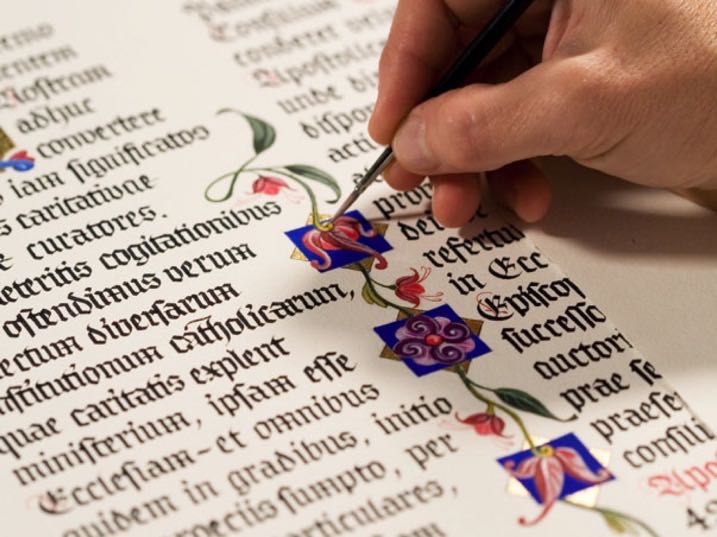 Nostram
adhuc
convertere
iam significatos
caritativae
curatores.
eteritis cogitationibus
ostendimus verum
ectum diversarum
nstitutionum catholicarum,
quae caritatis explent
ministerium, ipsam esse
Ecclesiam – et omnibus
quidem in gradibus, initio
oeciis sumpto, per
articulares,
Consilium
conderet
Apostolic
unde di
dispon
acti
pro
refertur
in Ecc
Episcop
successo
auctori
prae se
praese
consili
Apos